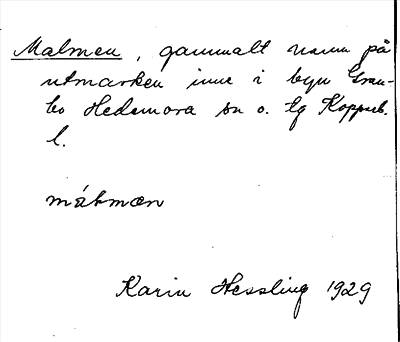 Malmen, gammalt namn på
utmarken inne i byn Gran-
bo Hedemora sn o. tg Kopparb.
l.
málmæn
Karin Hessling 1929